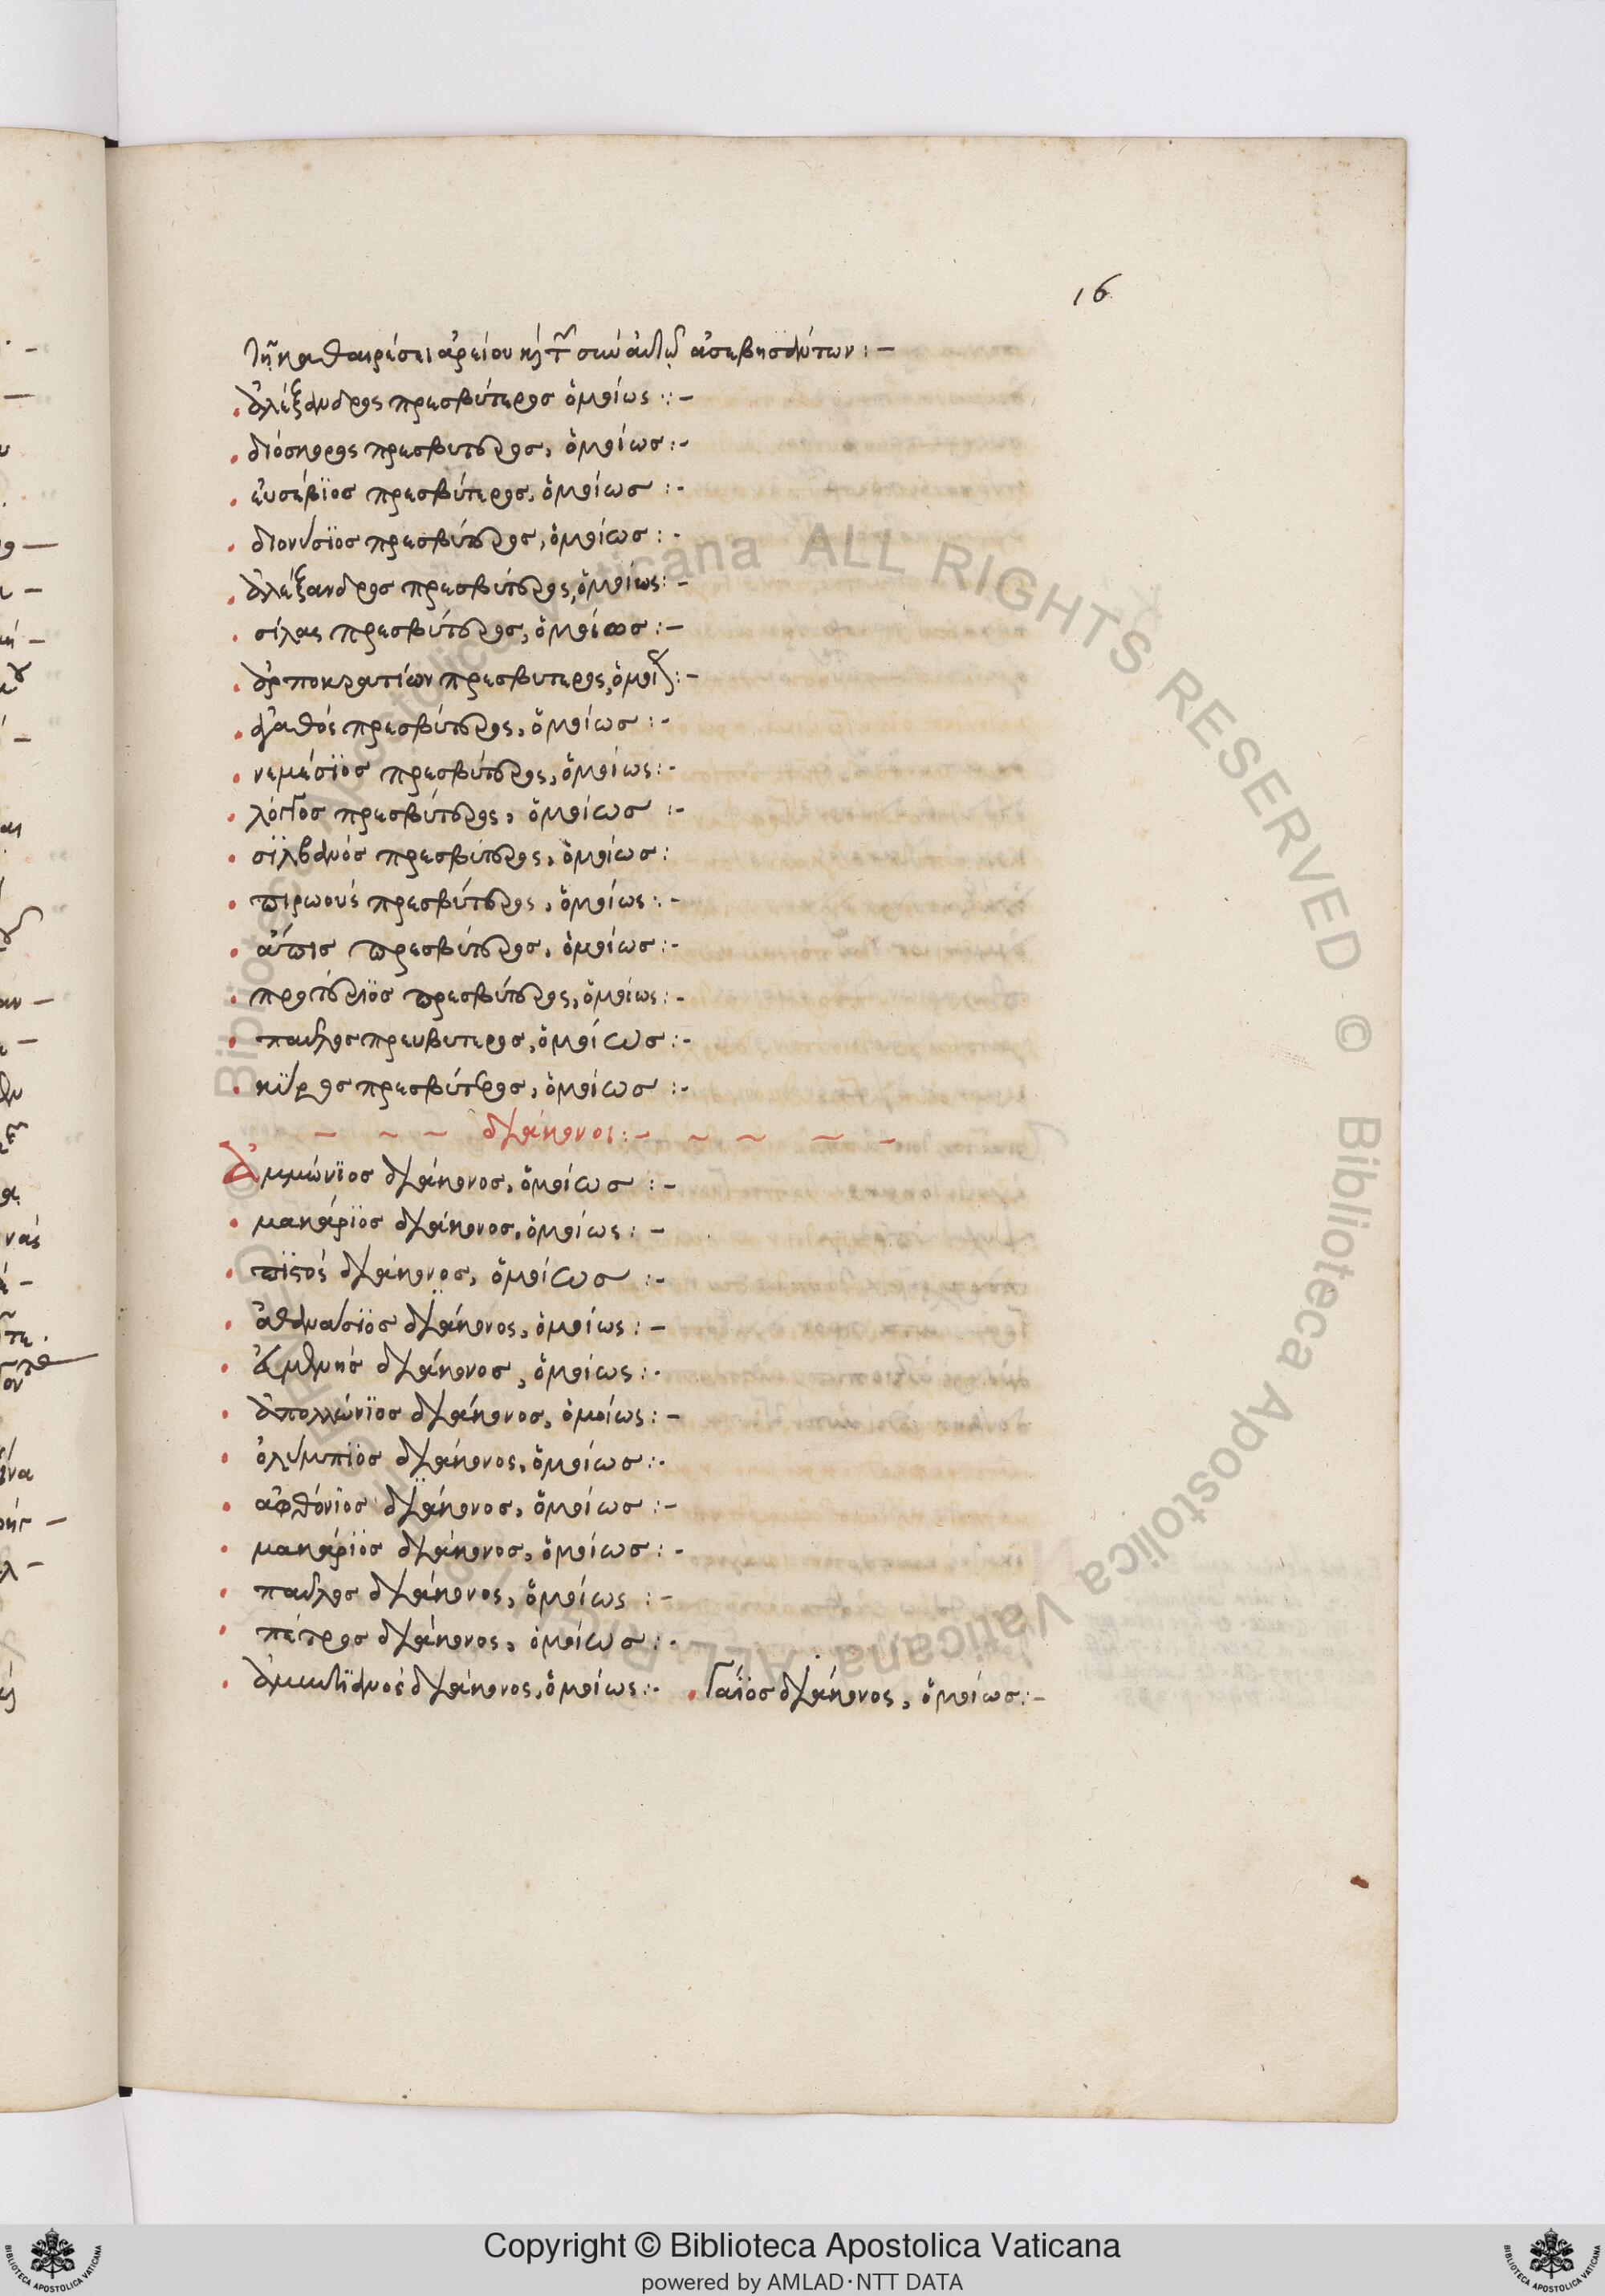 16
τῆ καθαιρέσει ἀρείου κ(αὶ) τ(ῶν) σὺν αὐτῶ ἀσεβησάντων :-
ἀλέξανδρος πρεσβύτερος ὁμοίως :-
διόσκορος πρεσβυτερος, ὁμοίως :-
εὐσέβϊος πρεσβύτερος, ὁμοίως :-
διονύσϊος πρεσβύτερος, ὁμοίως :-
ἀλέξανδρος πρεσβύτερος, ὁμοίως :-
σίλας πρεσβύτερος, ὁμοίως :-
ἁρποκρατίων πρεσβυτερος, ὁμοί :-
ἀγαθός πρεσβύτερος, ὁμοίως :-
νεμέσϊος πρεσβύτερος, ὁμοίως :-
λόγγος πρεσβύτερος, ὁμοίως :-
σϊλβανός πρεσβύτερος, ὁμοίως :
πιρωούς πρεσβύτερος, ὁμοίως :-
ἄπις πρεσβύτερος, ὁμοίως :-
προτέρϊος πρεσβύτερος, ὁμοίως :-
παυλος πρευβυτερος, ὁμοίως :-
κῦρος πρεσβύτερος, ὁμοίως :-
διάκονοι :-
Ἀμμώνϊος διάκονος, ὁμοίως :-
μακάρϊος διάκονος, ὁμοίως :-
πϊστός διάκονος, ὁμοίως :-
ἀθανάσϊος διάκονος, ὁμοίως :-
εὐμένης διάκονος, ὁμοίως :-
ἀπολλώνϊος διάκονος, ὁμοίως :-
ὀλύμπϊος διάκονος, ὁμοίως :-
ἀφθόνϊος διάκονος, ὁμοίως :-
μακάρϊος διάκονος, ὁμοίως :-
παῦλος διάκονος, ὁμοίως :-
πέτρος διάκονος, ὁμοίως :-
ἀμυντϊανός διάκονος, ὁμοίως :- Γάϊος διάκονος, ὁμοίως :-
Biblioteca Apostolica Vaticana ALL RIGHTS RESERVED ©
Copyright © Biblioteca Apostolica Vaticana
powered by AMLAD·NTT DATA